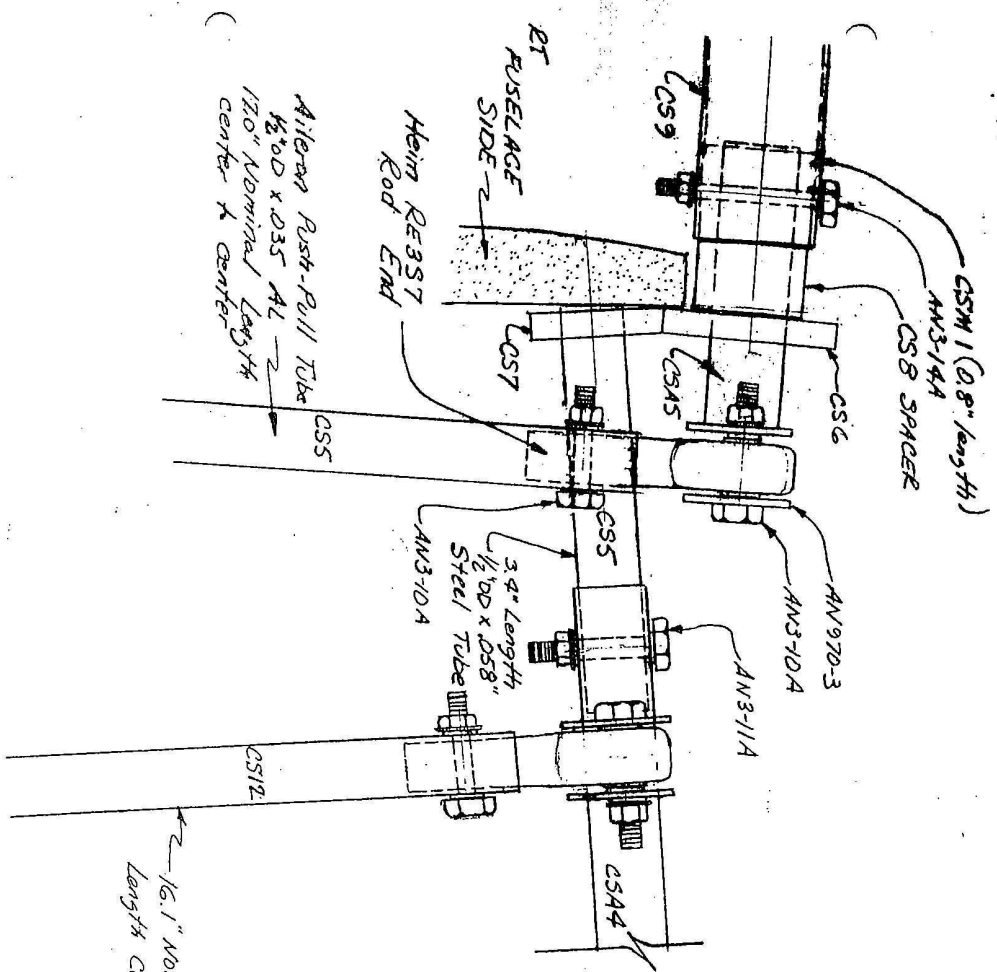 CSM1 (0.8" length)
AN3-14A
CS8 SPACER
CS9
CS6
CSA5
AN970-3
AN3-10A
RT
FUSELAGE
SIDE
CS7
Heim RE3S7
Rod End
CS5
AN3-11A
CS5
3.4" Length
1/2" OD x .058"
Steel Tube
AN3-10A
Aileron Push-Pull Tube
1/2" OD x .035 AL
17.0" Nominal Length
center to center
CSA4
CS12
16.1" No
Length C